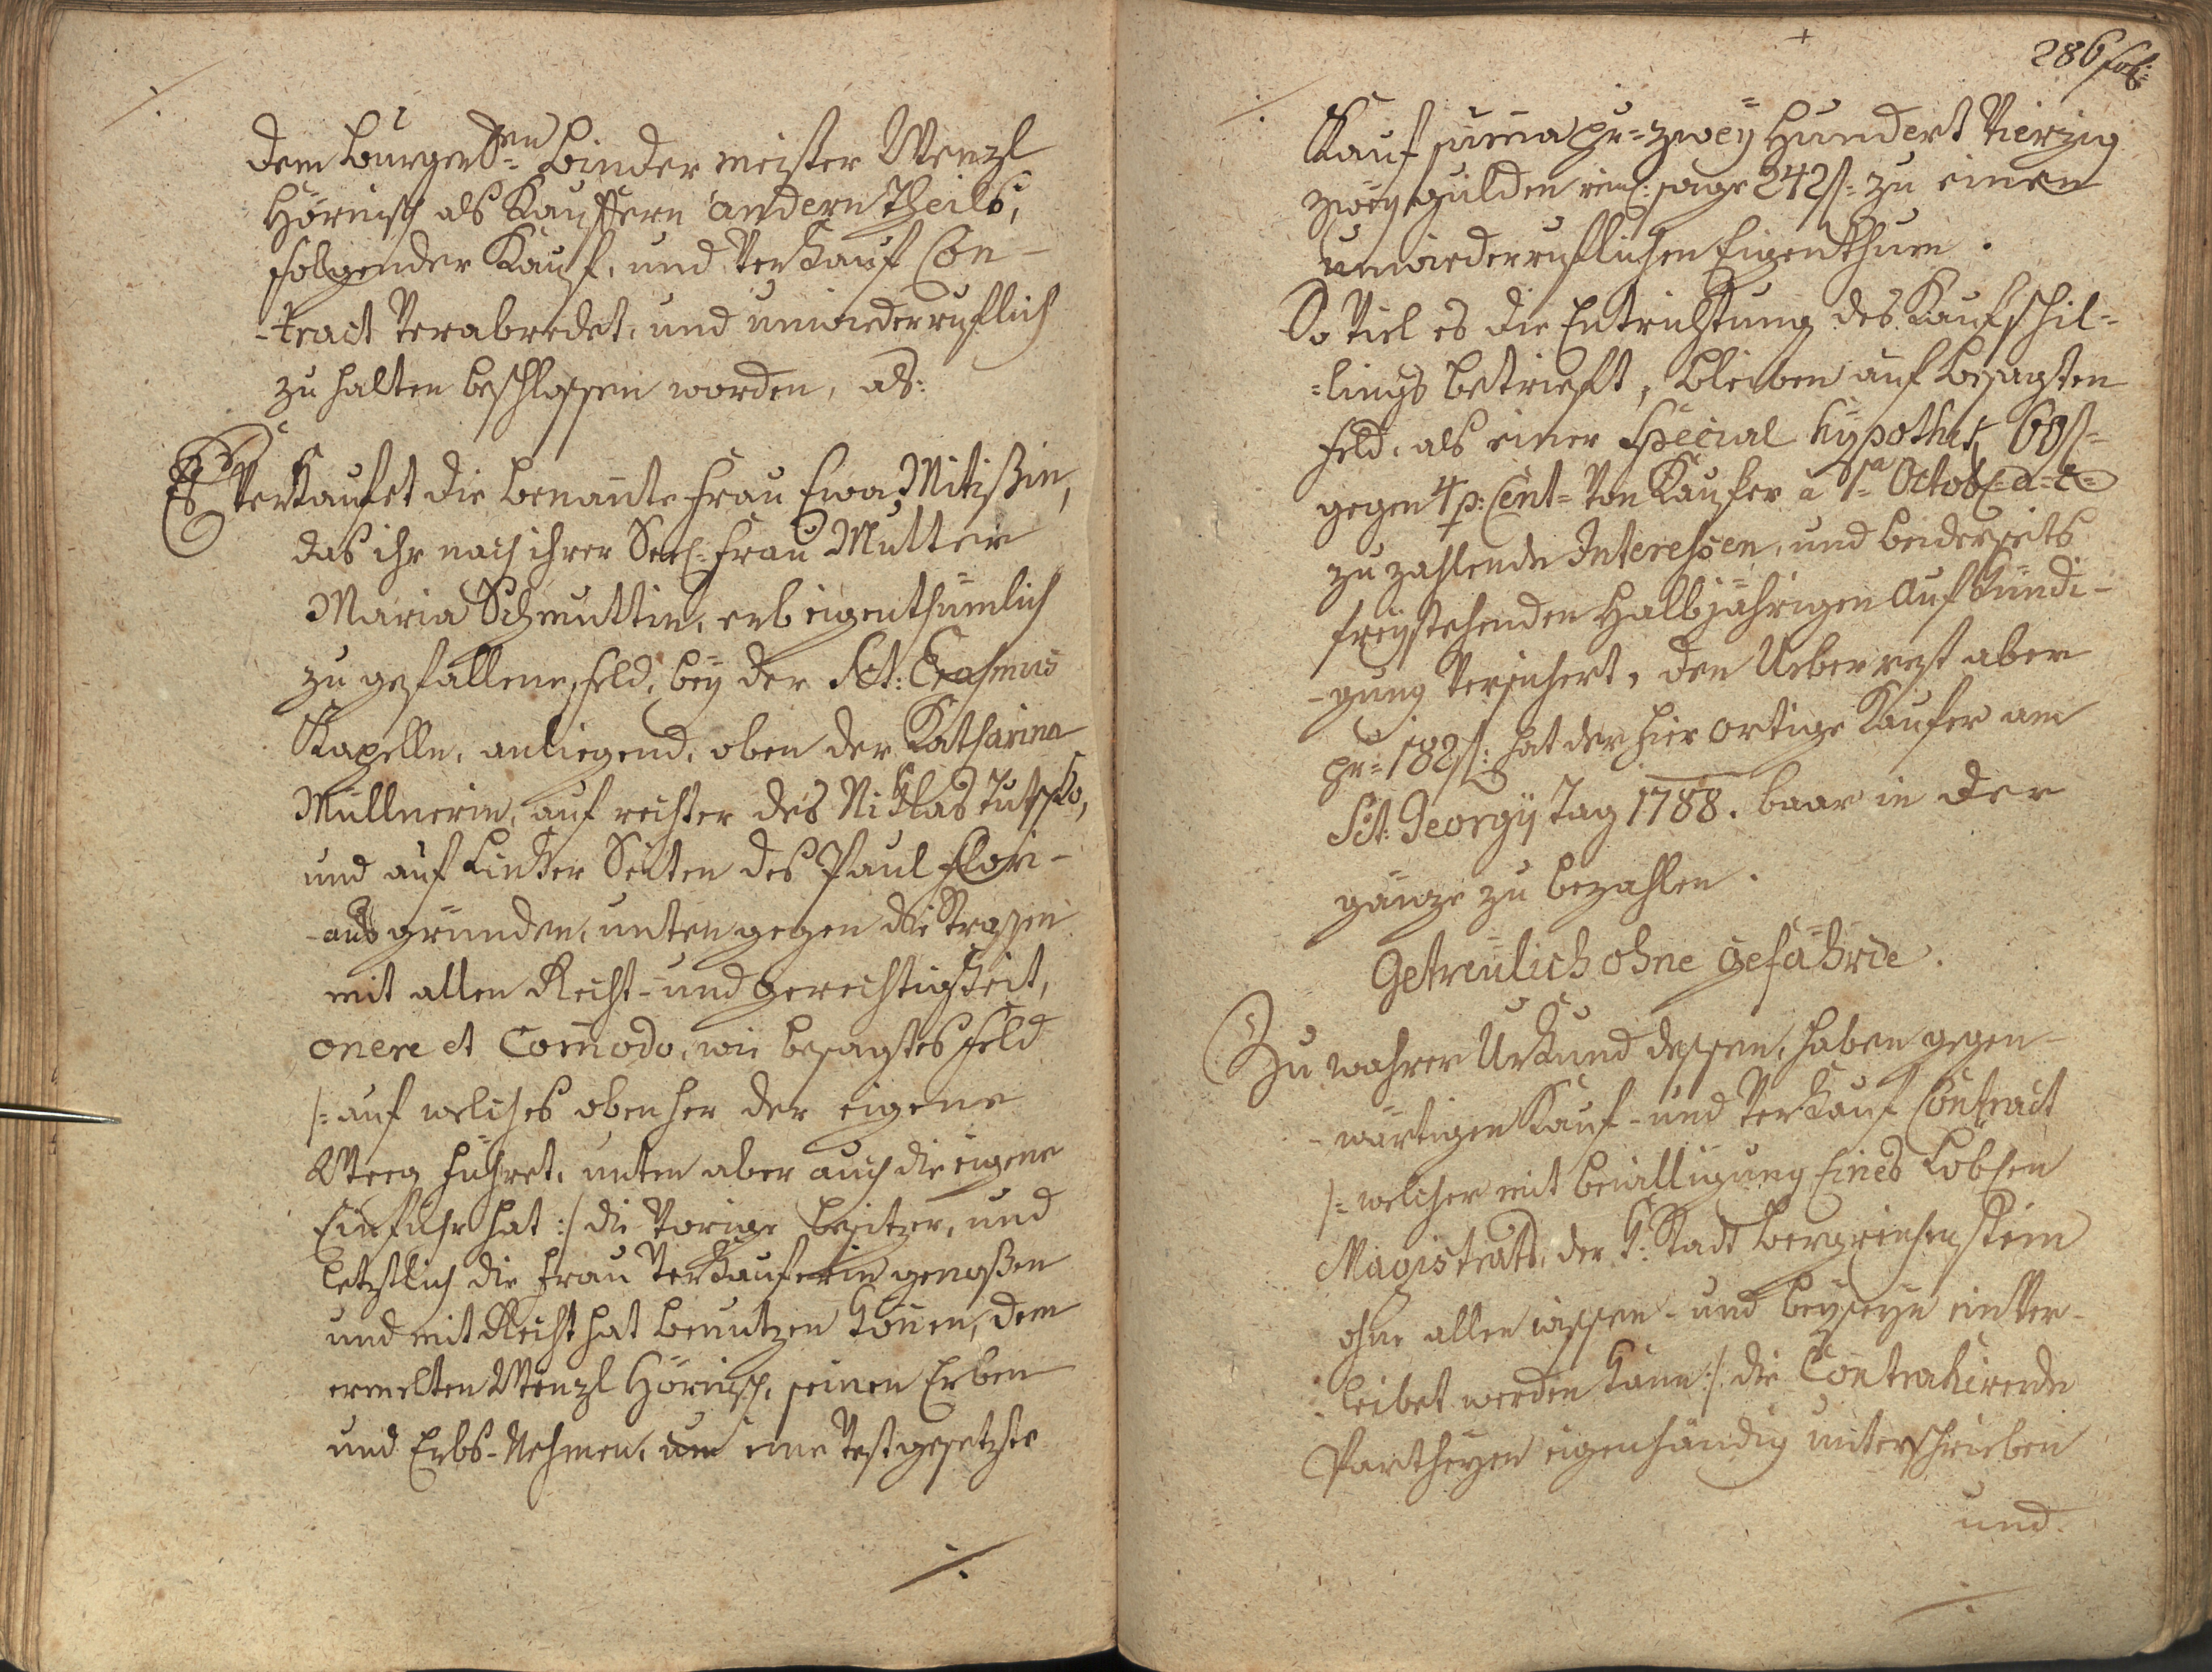 dem Burger&shy;en Binder meister Wenzl
Hörnisch als Kauffern andern Theils,
folgender Kauf, und Verkauf Con-
-tract Verabredet, und unwiederruflich
zu halten beschlossen worden, als:
Es Verkaufet die benante Frau Ewa Mitißin,
das ihr nach ihrer Seel: Frau Mutter
Maria Schmuttin, erbeigenthümlich
zu gefallene Feld, bey der Sct: Erasmus
Kapelle, anliegend, oben der Katharina
Müllnerin, auf rechter des Niklas
und auf Linker Seiten des Paul Flori-
-ans gründen, unten gegen die Strassen
mit allen Recht- und Gerechtigkeit,
onere et Comodo, wie besagtes Feld
/: auf welches obenher der eigene
Weeg führet, unten aber auch die eigene
Einfuhr hat :/ die Vorige besitzer, und
letztlich die Frau Verkauferin genoßen
und mit Recht hat benutzen können, dem
ermelten Wenzl Hörnisch, seinen Erben
und Erbs-Nehmen, um eine Vestgesetzte
./.
286 fol:
Kauf suma pr= zwey Hundert Vierzig
zwey gulden rein: sage 242 f= zu einen
unwiederruflichen Eigenthum.
So Viel es die Entrichtung des Kaufschil=
=lings betrieft, bleiben auf besagten
Feld, als einer Special Hypothek 60 f=
gegen 4 p: Cent= Von Kaufer a 1ª Octob: a= c=
zu zahlende Interessen, und beiderseits
freystehenden Halbjährigen Aufkündi-
-gung Versichert, den Ueberrest aber
pr= 182 f: hat der hier ortige Kaufer am
Sct: Georgÿ Tag 1788. baar in der
gänze zu bezahlen.
Getreülich ohne gefährde.
Zu wahrer Urkund dessen, haben gegen-
-wärtigen Kauf- und Verkauf Contract
/: welcher mit bewilligung Eines Löbhen
Magistrats, der k: Stadt Bergreichenstein
ohne allen wissen- und beyseyn einVer-
-leibet werden kann :/ die Contrahirende
Partheyen eigenhändig unterschrieben
und
./.